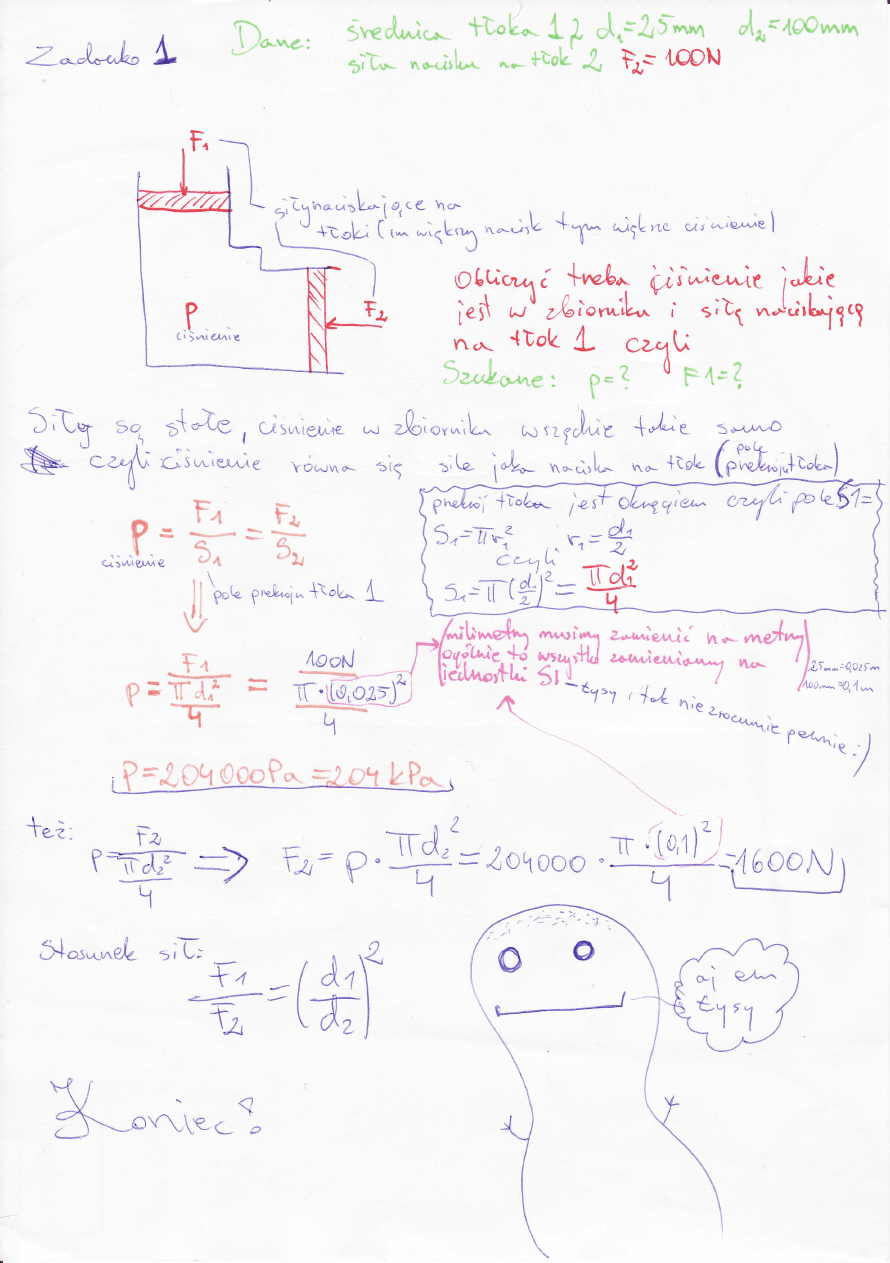 Zadanko 1
Dane: średnica tłoka 1,2 d₁=25mm d₂=100mm
siła nacisku na tłok 2 F₂=100N
F₁
siły naciskające na
tłoki (im większy nacisk tym większe ciśnienie)
F₂
p
ciśnienie
Obliczyć treba ciśnienie jakie
jest w zbiorniku i siłę naciskającą
na tłok 1 czyli
Szukane: p=? F1=?
Siły są stałe, ciśnienie w zbiorniku wszędzie takie samo
czyli ciśnienie równa się sile jaka naciska na tłok (pole przekroju tłoka)
p = F₁/S₁ = F₂/S₂
ciśnienie
pole przekroju tłoka 1
przekrój tłoka jest okręgiem czyli pole S1=
S₁=πr₁² r₁=d₁/2
czyli
S₁=π(d₁/2)² = πd₁²/4
p = F₁/(πd₁²/4) = 100N/(π·(0,025)²/4)
(milimetry musimy zamienić na metry
ogólnie to wszystko zamieniamy na
jednostki SI)
25mm=0,025m
100mm=0,1m
– łysy i tak nie zrozumie pewnie :)
P=204000Pa=204kPa
też:
p=F₂/(πd₂²/4) ⇒ F₂= p·πd₂²/4=204000·π·(0,1)²/4=1600N
Stosunek sił:
F₁/F₂=(d₁/d₂)²
aj em
łysy
Koniec?